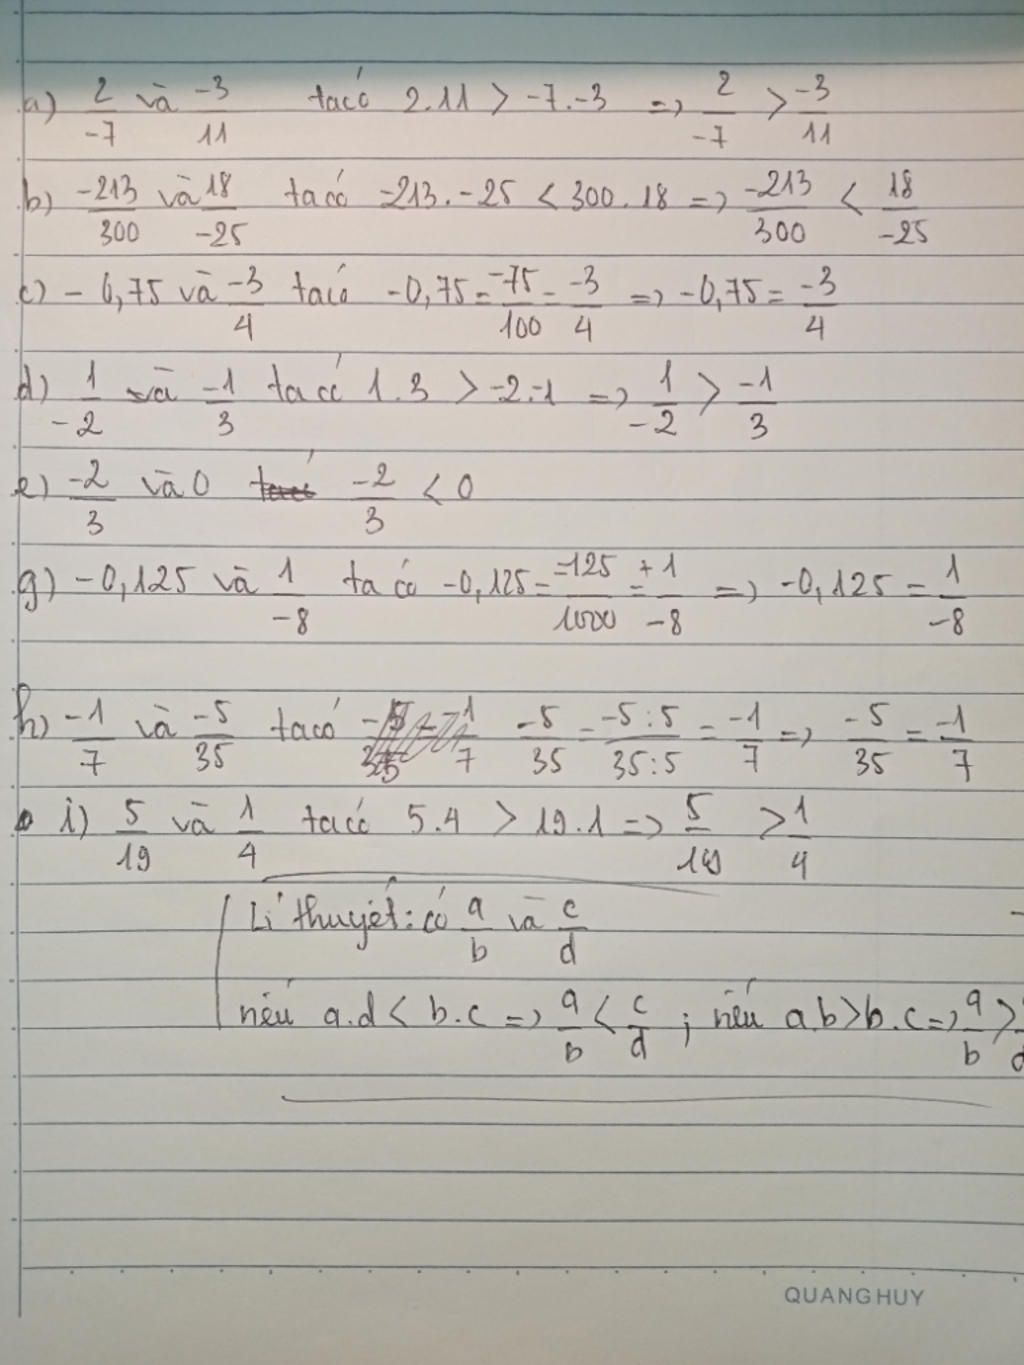 a) 2/-7 và -3/11 ta có 2.11 > -7.-3 => 2/-7 > -3/11
b) -213/300 và 18/-25 ta có -213.-25 < 300.18 => -213/300 < 18/-25
c) -0,75 và -3/4 ta có -0,75 = -75/100 = -3/4 => -0,75 = -3/4
d) 1/-2 và -1/3 ta có 1.3 > -2.-1 => 1/-2 > -1/3
e) -2/3 và 0 -2/3 < 0
g) -0,125 và 1/-8 ta có -0,125 = -125/1000 = +1/-8 => -0,125 = 1/-8
h) -1/7 và -5/35 ta có -5/35 = -5:5/35:5 = -1/7 => -5/35 = -1/7
i) 5/19 và 1/4 ta có 5.4 > 19.1 => 5/19 > 1/4
Lí thuyết: có a/b và c/d
nếu a.d < b.c => a/b < c/d ; nếu a.b > b.c => a/b >
QUANG HUY